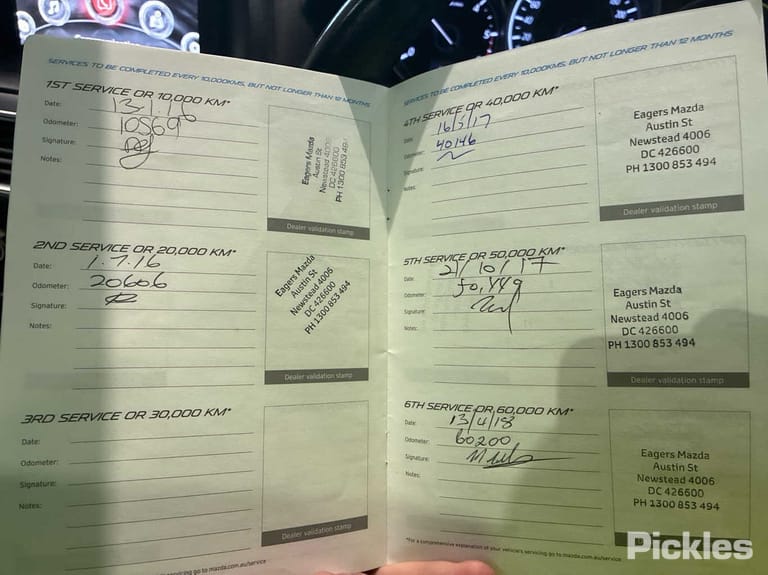 SERVICES TO BE COMPLETED EVERY 10,000KMS, BUT NOT LONGER THAN 12 MONTHS
1ST SERVICE OR 10,000 KM*
Date: 13.1.16
Odometer: 10569
Signature:
Notes:
Eagers Mazda
Austin St
Newstead 4006
DC 426600
PH 1300 853 494
Dealer validation stamp
2ND SERVICE OR 20,000 KM*
Date: 1.7.16
Odometer: 20606
Signature:
Notes:
Eagers Mazda
Austin St
Newstead 4006
DC 426600
PH 1300 853 494
Dealer validation stamp
3RD SERVICE OR 30,000 KM*
Date:
Odometer:
Signature:
Notes:
Dealer validation stamp
servicing go to mazda.com.au/service
SERVICES TO BE COMPLETED EVERY 10,000KMS, BUT NOT LONGER THAN 12 MONTHS
4TH SERVICE OR 40,000 KM*
Date: 16/3/17
Odometer: 40146
Signature:
Notes:
Eagers Mazda
Austin St
Newstead 4006
DC 426600
PH 1300 853 494
Dealer validation stamp
5TH SERVICE OR 50,000 KM*
Date: 21/10/17
Odometer: 50,449
Signature:
Notes:
Eagers Mazda
Austin St
Newstead 4006
DC 426600
PH 1300 853 494
Dealer validation stamp
6TH SERVICE OR 60,000 KM*
Date: 13/4/18
Odometer: 60200
Signature:
Notes:
Eagers Mazda
Austin St
Newstead 4006
DC 426600
PH 1300 853 494
*For a comprehensive explanation of your vehicle's servicing go to mazda.com.au/service
Pickles